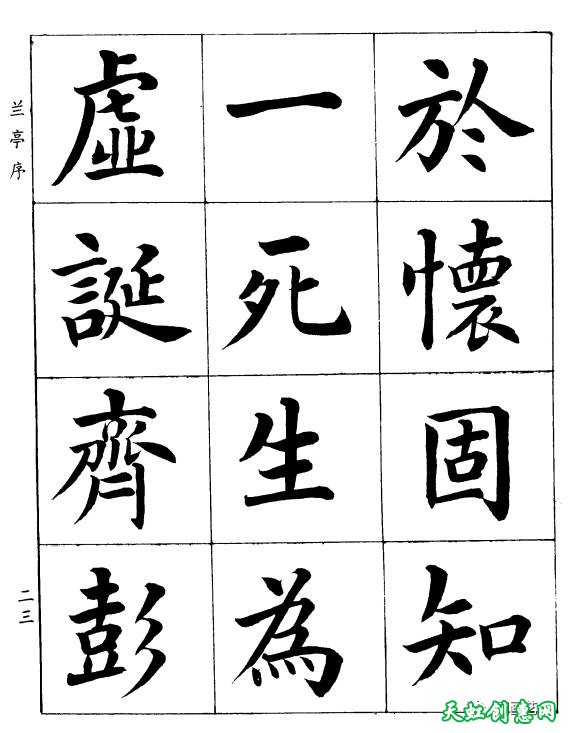 於懷固知
一死生為
虛誕齊彭
兰亭序
二三
天虹创意网